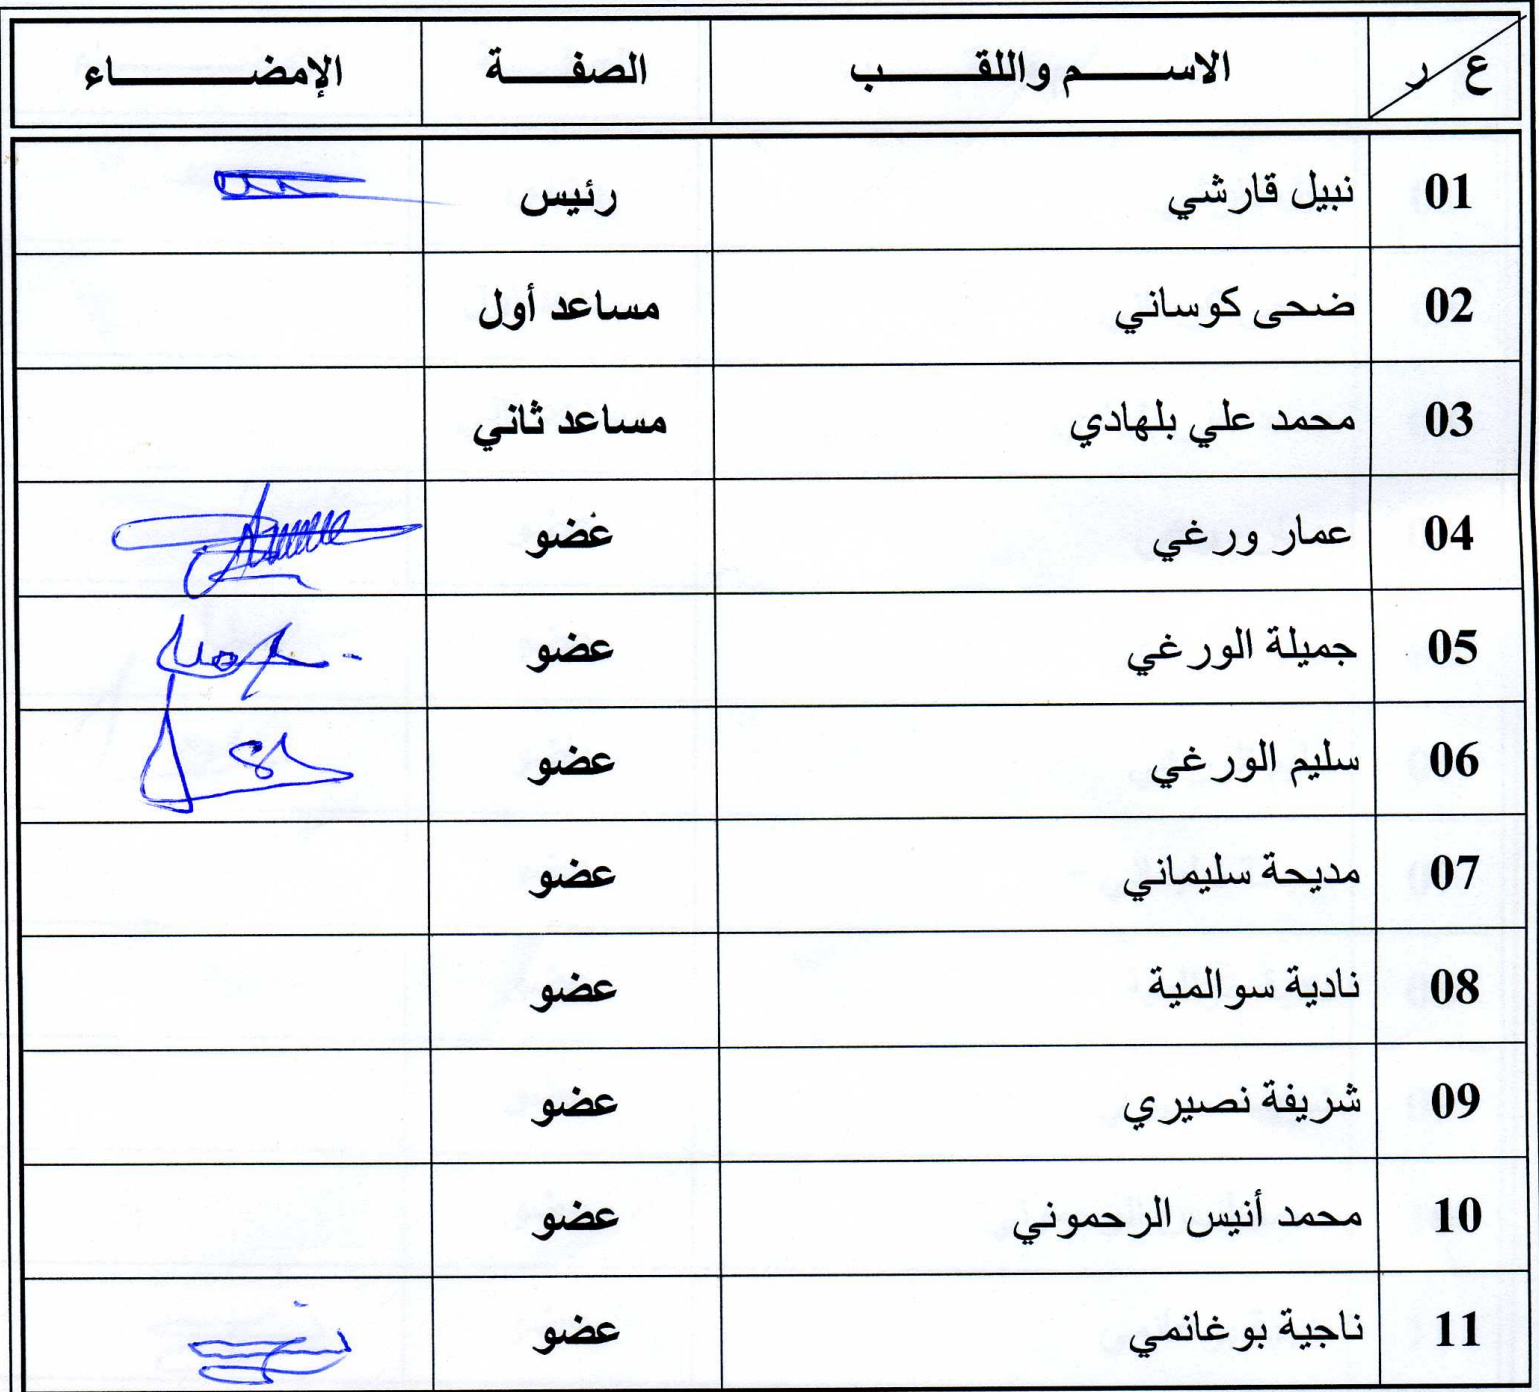 ع ر الاسم واللقب الصفة الإمضاء
01 نبيل قارشي رئيس
02 ضحى كوساني مساعد أول
03 محمد علي بلهادي مساعد ثاني
04 عمار ورغي عضو
05 جميلة الورغي عضو
06 سليم الورغي عضو
07 مديحة سليماني عضو
08 نادية سوالمية عضو
09 شريفة نصيري عضو
10 محمد أنيس الرحموني عضو
11 ناجية بوغانمي عضو